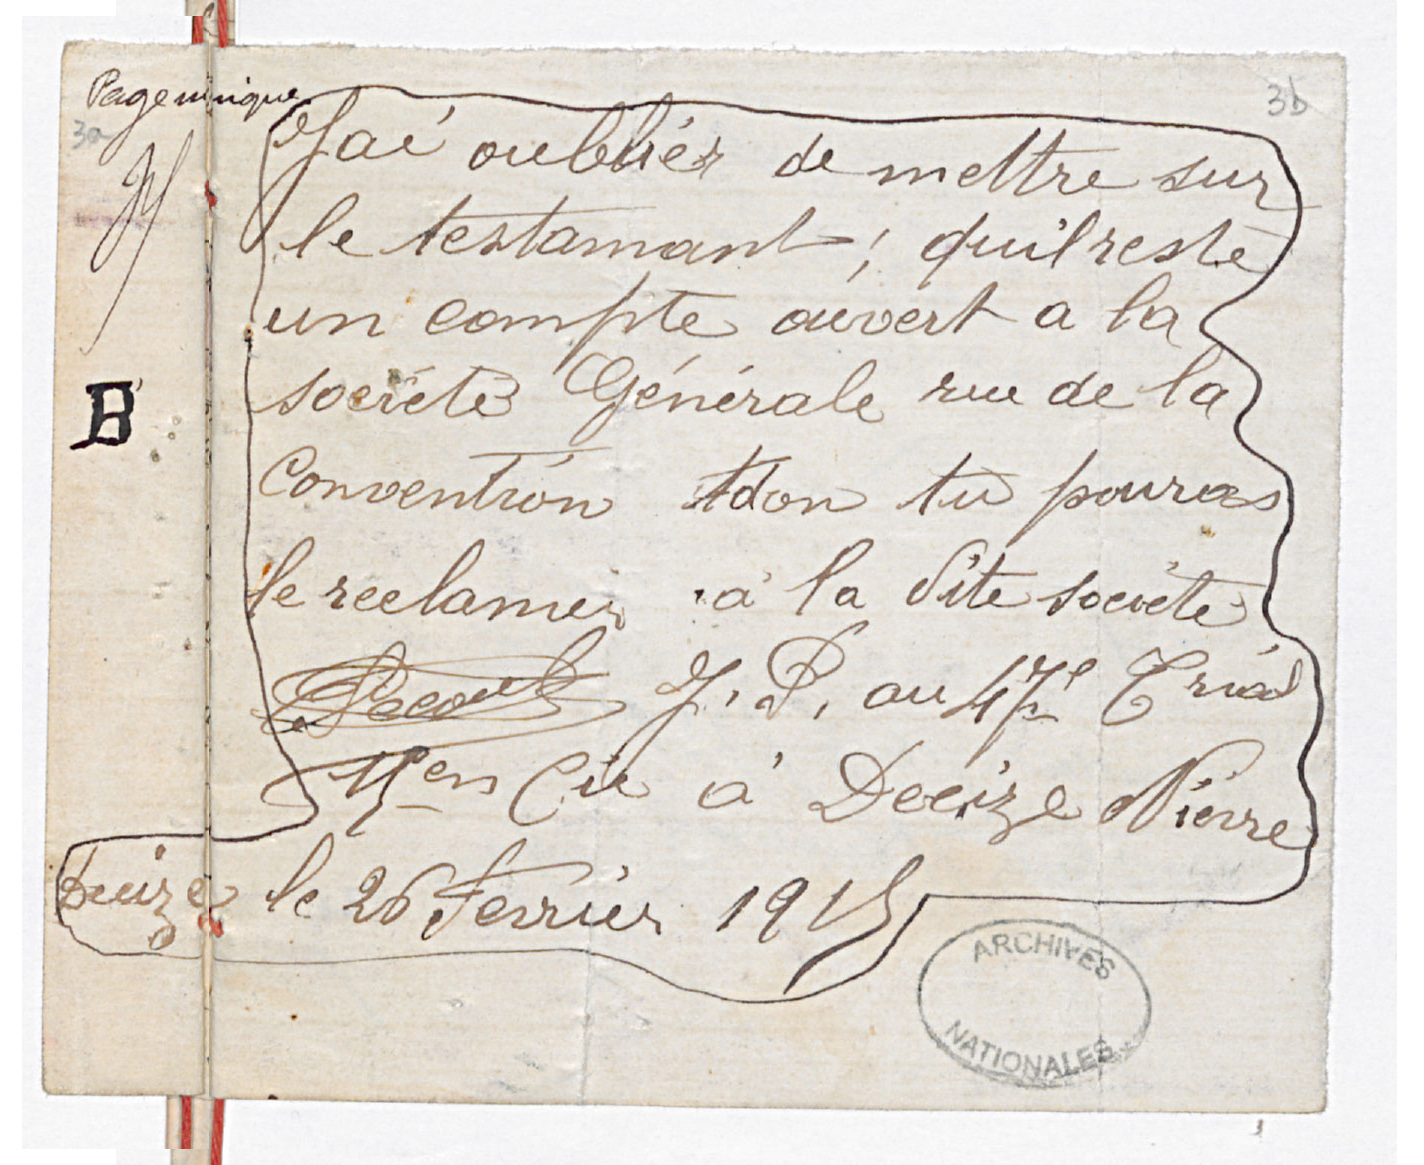 Page unique
3b
3a
J'ai oubliér de mettre sur
le testamant ; qu'il reste
un compte ouvert a la
societé Générale rue de la
Convention don tu pouras
le reclamer à la dite société
J. P. au 47e
Cie à Decize Nievre
B
Decize le 26 Fevrier 1915
ARCHIVES
NATIONALES